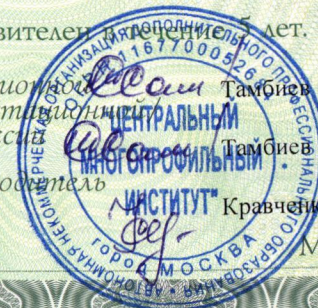 вителен в течение 5 лет.
Тамбиев
Тамбиев
Кравчен
АВТОНОМНАЯ НЕКОММЕРЧЕСКАЯ ОРГАНИЗАЦИЯ ДОПОЛНИТЕЛЬНОГО ПРОФЕССИОНАЛЬНОГО ОБРАЗОВАНИЯ
"ЦЕНТРАЛЬНЫЙ
МНОГОПРОФИЛЬНЫЙ
ИНСТИТУТ"
ГОРОД МОСКВА
М